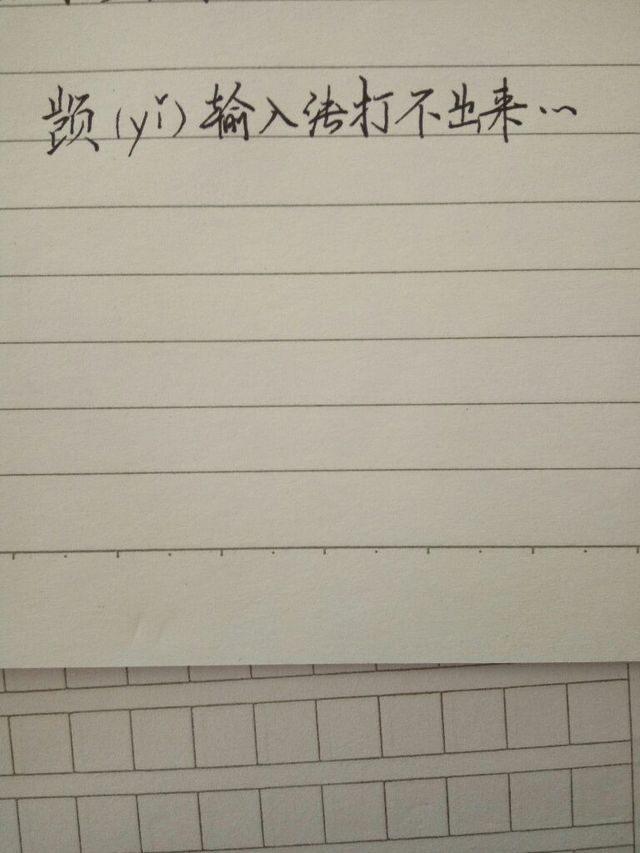 𫖮(yǐ)输入法打不出来…